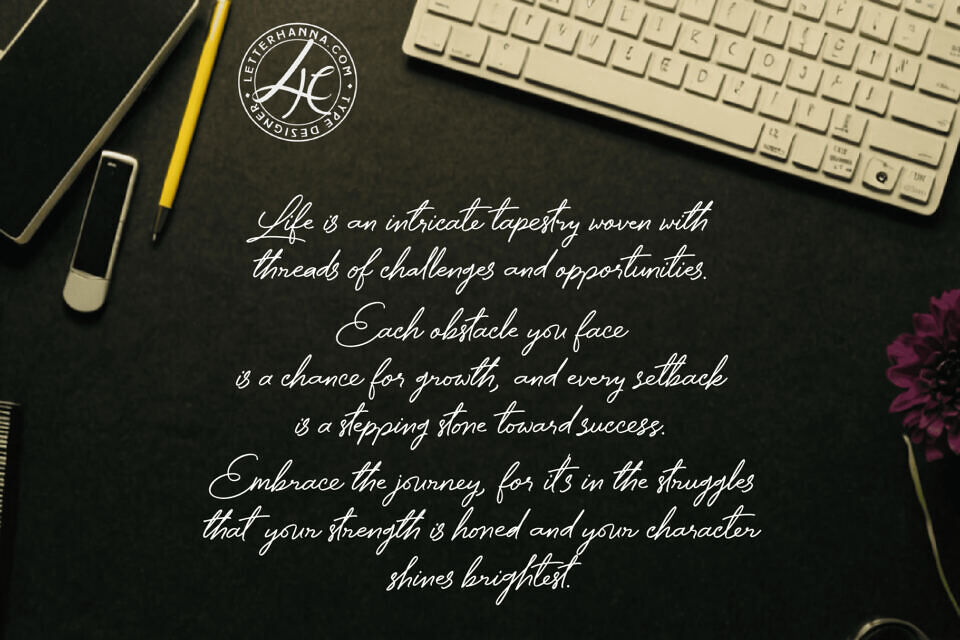 LETTERHANNA.COM
TYPE DESIGNER
LH
Life is an intricate tapestry woven with
threads of challenges and opportunities.
Each obstacle you face
is a chance for growth, and every setback
is a stepping stone toward success.
Embrace the journey, for it's in the struggles
that your strength is honed and your character
shines brightest.